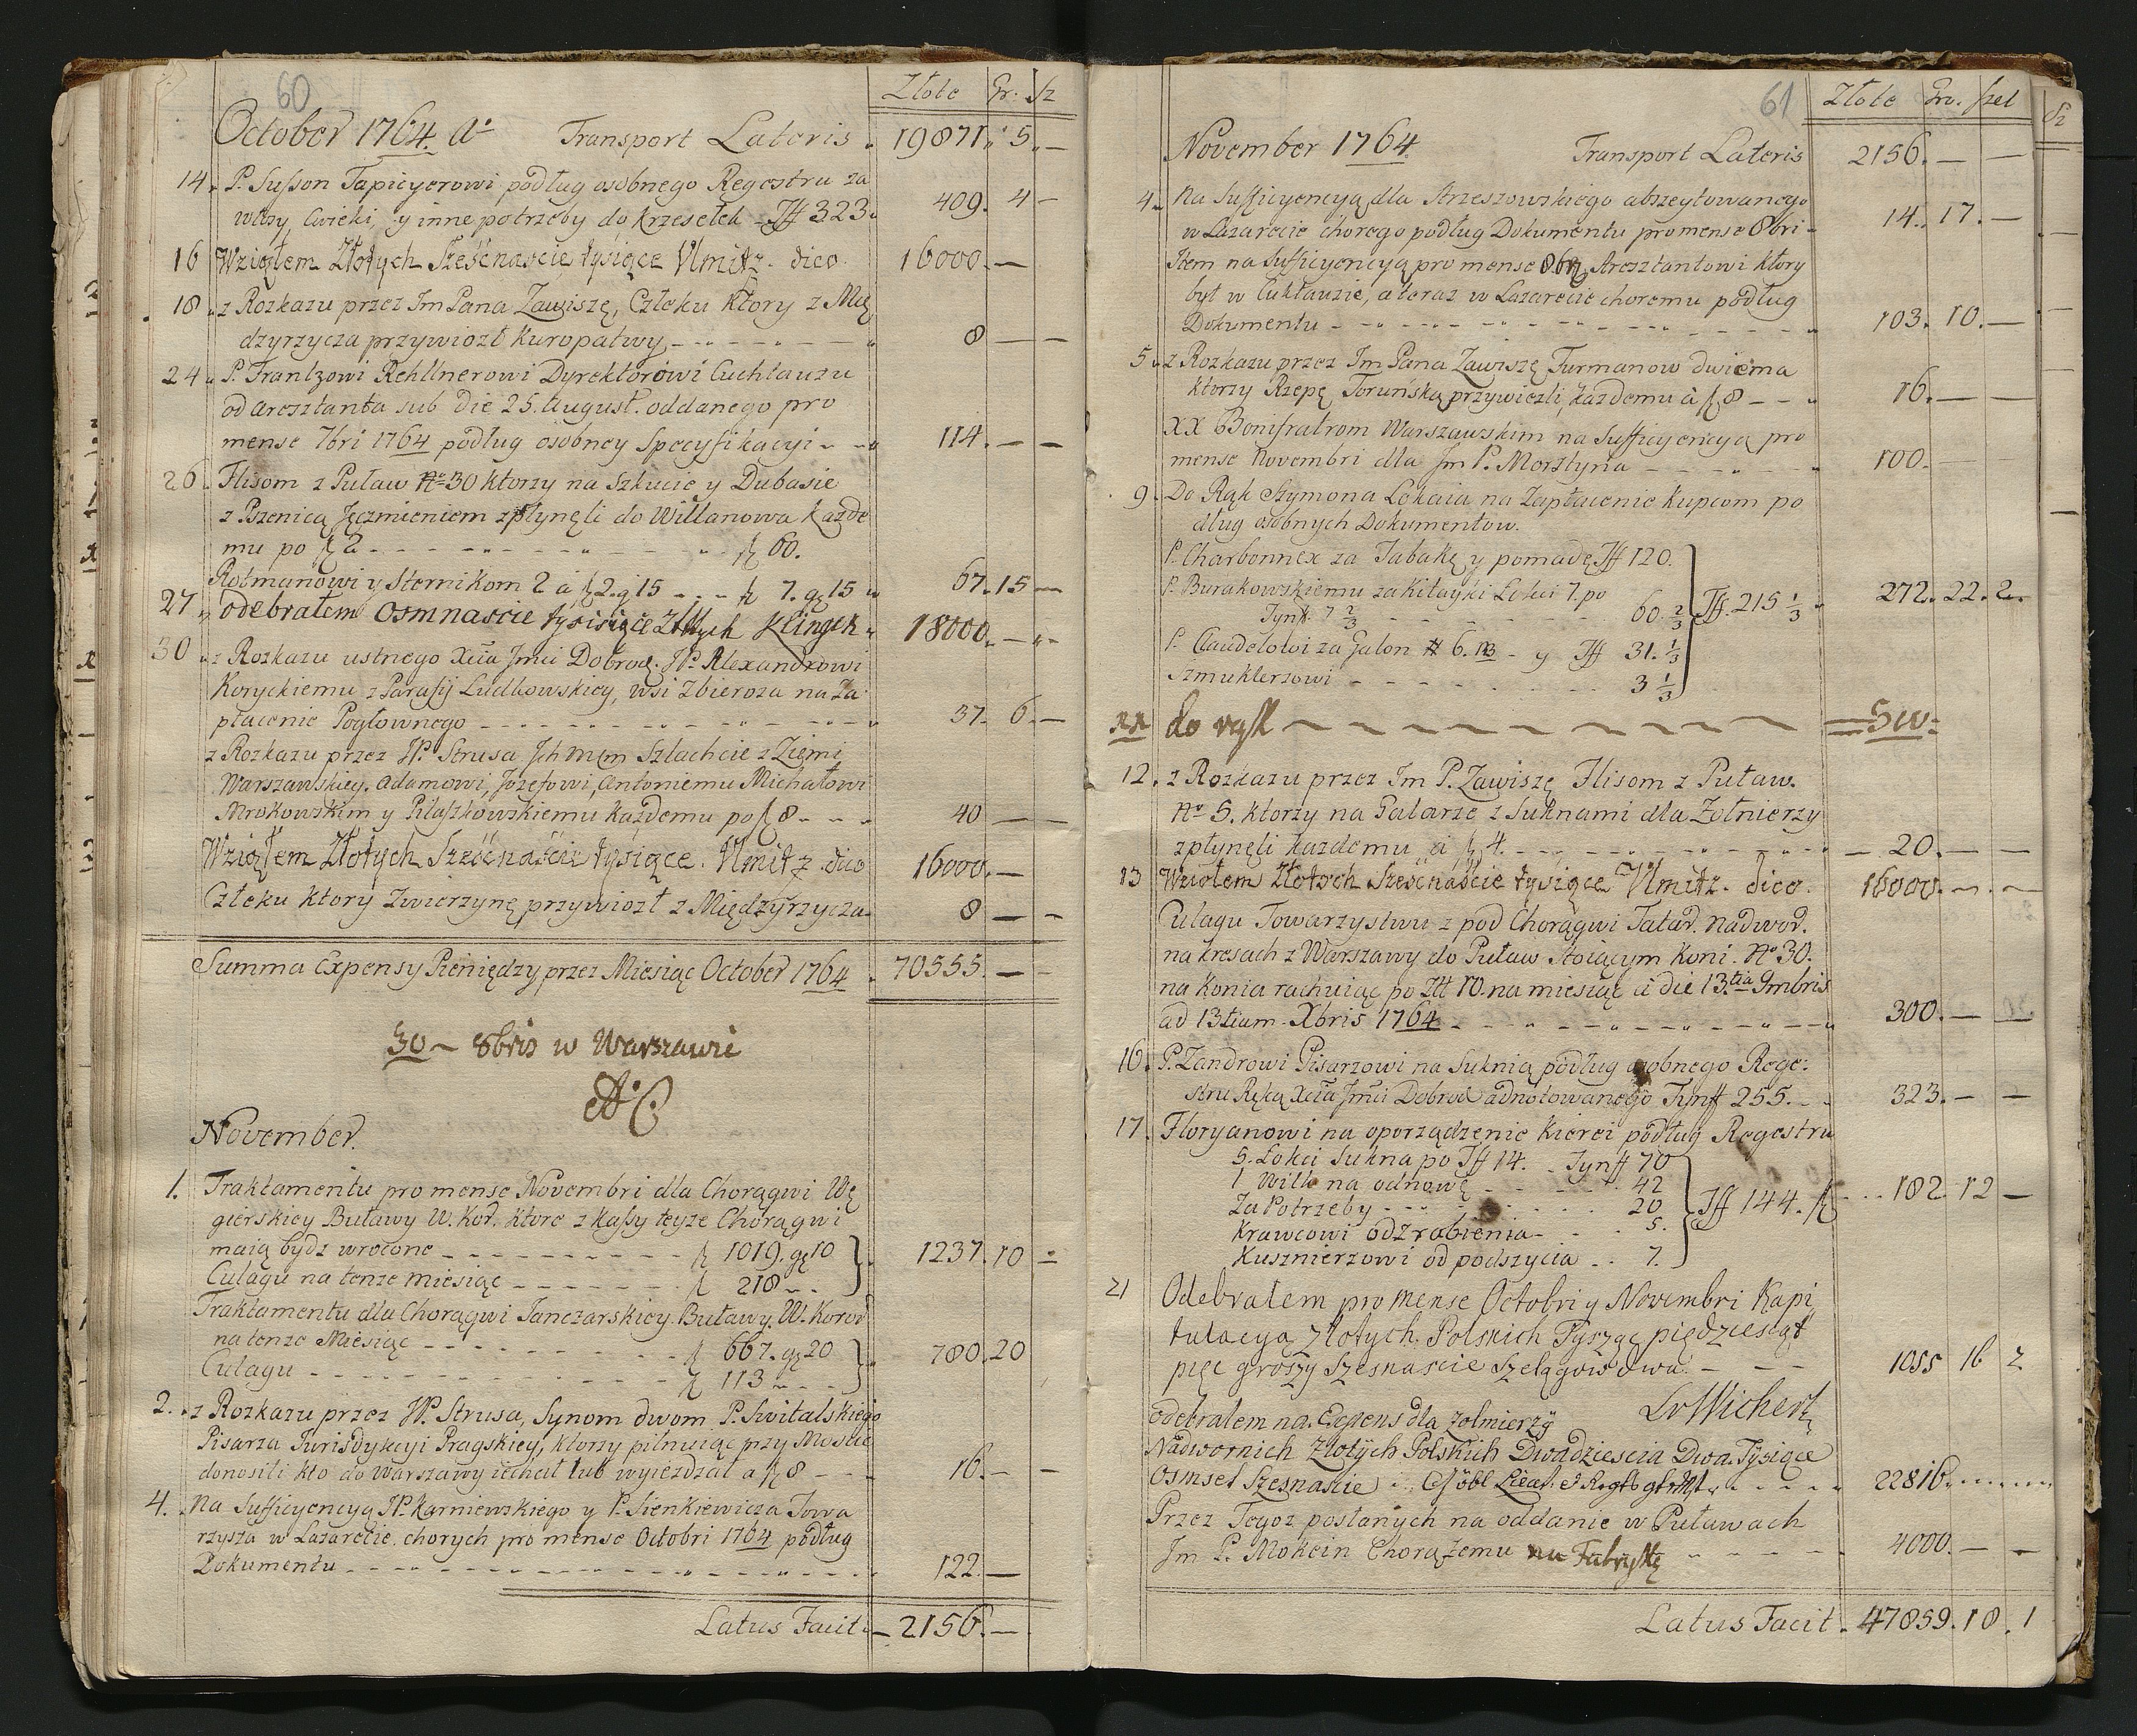 60
Złote Gr: Sz
October 1764. A° Transport Lateris 19871. 5. —
14. P. Susson Tapicyerowi podług osobnego Regestru za
włosy, Cwieki, y inne potrzeby do krzesełek Tff 323. 409. 4 —
16 Wziąłem Złotych Sześćnascie tysięce Ulmitz. dico. 16000. —
18. z Rozkazu przez Im Pana Zawiszę, Człeku ktory z Mię
dzyrzycza przywiozł kuropatwy, — 8 — —
24. P. Frantzowi Rehllnerowi Dyrektorowi Cuchtauzu
od aresztanta sub die 25. August. oddanego pro
mense 7bri 1764 podług osobney Specyfikacyi 114. — —
26. Flisom z Puław N° 30 ktorzy na Szkucie y Dubasie
z Pszenicą Jęczmieniem zpłynęli do Willanowa każde
mu po f 2 — f 60.
Rotmanowi y Sternikom 2 à f 2. g 15 — f 7. gr 15 67. 15 —
27. odebrałem Osmnascie tysisięce Złłtych Klingek 18000. —
30. z Rozkazu ustnego Xcia Jmci Dobrod. JP. Alexandrowi
Koryckiemu z Parafij Ludkowskiey, wsi Zbieroza na Za
płacenie Pogłownego — 37. 6. —
z Rozkazu przez JP. Strusa Jch Mcm Szlachcie z Ziemi
Warszawskiey. Adamowi, Jozefowi, Antoniemu Michałowi
Mrokowskim y Piłaszkowskiemu każdemu po f 8 — 40 — —
Wziąłem Złotych Sześćnaście tysięce. Ulmitz dico 16000. —
Człeku ktory Zwierzynę przywiozł z Międzyrzycza 8 — —
Summa Expensy Pieniędzy przez Miesiąc October 1764 70555. — —
30 — 8bris w Warszawie
AC
November.
1. Traktamentu pro mense Novembri dla Chorągwi Wę
gierskiey Buławy W. Kor. ktore z kassy teyze Chorągwi
maią bydz wrocone — f 1019. gr 10
Culagu na tenze miesiąc — f 218 1237. 10 —
Traktamentu dla Chorągwi Janczarskiey Buławy W. Koron
na tenze Miesiąc — f 667. gr 20
Culagu — f 113 780. 20
2. z Rozkazu przez JP. Strusa, Synom dwom P. Switalskiego
Pisarza Jurisdykcyi Pragskiey, ktorzy pilnuiąc przy Moscie
donosili kto do Warszawy iechał lub wyiezdzał a f 8 — 16. — —
4. Na Sufficyencyą JP. Karniewskiego y P. Sienkiewicza Towa
rzysza w Lazarecie chorych pro mense Octobri 1764 podług
Dokumentu — 122. —
Latus Facit — 2156. —
61
Złote Gro. szel
November 1764. Transport Lateris 2156. — —
4. Na Sufficyencyą dla Strzeszowskiego abszeytowanego
w Lazarecie chorego podług Dokumentu pro mense 8bri 14. 17. —
Item na Sufficyencyą pro mense 8bri Aresztantowi ktory
był w Cuktauzie, a teraz w Lazarecie choremu podług
Dokumentu — 103. 10. —
5. z Rozkazu przez Im Pana Zawiszę Furmanow dwiema
ktorzy Rzepę Toruńską przywieźli, każdemu à f 8 — 16. — —
XX Bonifratrom Warszawskim na Sufficyencyą pro
mense Novembri dla Jm P. Morsztyna — 100. —
9. Do Rąk Szymona Lokaia na Zapłacenie kupcom po
dług osobnych Dokumentow.
P. Charbonnex za Tabakę y pomadę Tff 120.
P. Burakowskiemu za Kitayki Łokci 7. po
Tynf. 7 2/3 — 60. 2/3 Tff. 215 1/3 272. 22. 2.
P. Claudelowi za Galon # 6. — y Tff 31. 1/3
Szmuklerzowi — 3 1/3
do rąk —
12. z Rozkazu przez Im P. Zawiszę Flisom z Puław.
N° 5. ktorzy na Galarze z Suknami dla Zołnierzy
zpłynęli kazdemu à f 4. — 20. — —
13 Wziołem Złotych Szesćnaście tysięce Ulmitz. dico. 16000. — —
Culagu Towarzystwu z pod Chorągwi Tatar. Nadwor.
na kresach z Warszawy do Puław Stoiącym Koni. N° 30.
na konia rachuiąc po Złł 10. na miesiąc à die 13.tia 9mbris
ad 13tiam Xbris 1764 — 300. — —
16. P. Zandrowi Pisarzowi na Suknią podług osobnego Rege:
stru Ręką Xcia Jmci Dobrod adnotowanego Tynff 255. 323. — —
17. Floryanowi na oporządzenie kierei podług Regestru
5. Łokci Sukna po Tff 14. Tynff 70
1 Wilk na odnowę — 42
Za Potrzeby — 20 Tff 144. f 182. 12 —
Krawcowi od zrobienia — 5.
Kusznierzowi od podszycia 7.
21 Odebrałem pro Mense Octobri y Novembri Kapi
tulacyą Złotych Polskich Tysząc piędziesąt
pięc groszy Szesnascie Szelągow dwa. — 1055 16 2
Wichert
odebrałem na Expens dla zolmierzÿ
Nadwornich Złotÿch Polskich Dwadziescia Dwa Tÿsiące
osmset Szesnascie 22816.
Przez Tegoz posłanych na oddanie w Puławach
Jm P. Mokcin Chorązemu na Fabrykę 4000. — —
Latus Facit 47859. 18. 1